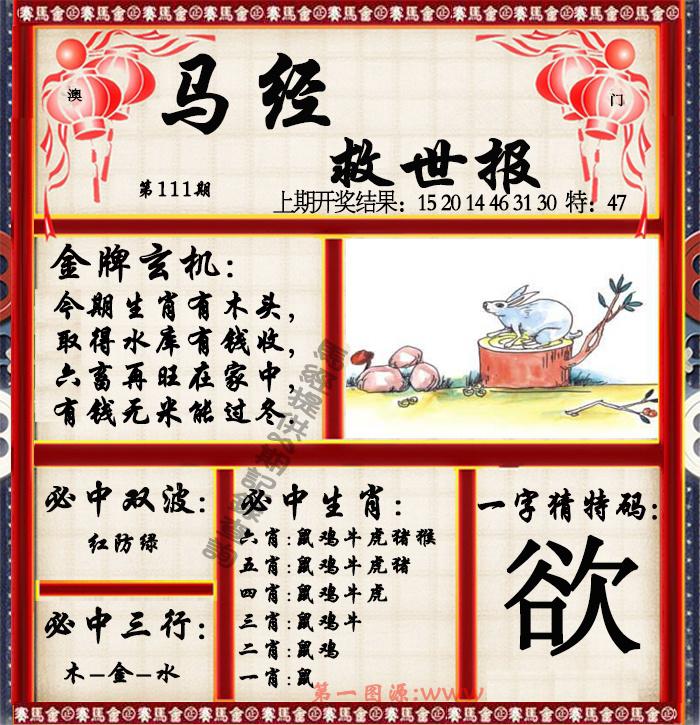 賽馬會正賽馬會正賽馬會正賽馬會正賽馬會正賽馬會
澳
门
马经
救世报
第111期
上期开奖结果：15 20 14 46 31 30 特：47
金牌玄机：
今期生肖有木头，
取得水库有钱收，
六畜再旺在家中，
有钱无米能过冬.
必中双波：
红防绿
必中三行：
木–金–水
必中生肖：
六肖:鼠鸡牛虎猪猴
五肖:鼠鸡牛虎猪
四肖:鼠鸡牛虎
三肖:鼠鸡牛
二肖:鼠鸡
一肖:鼠
一字猜特码：
欲
第一图源:www